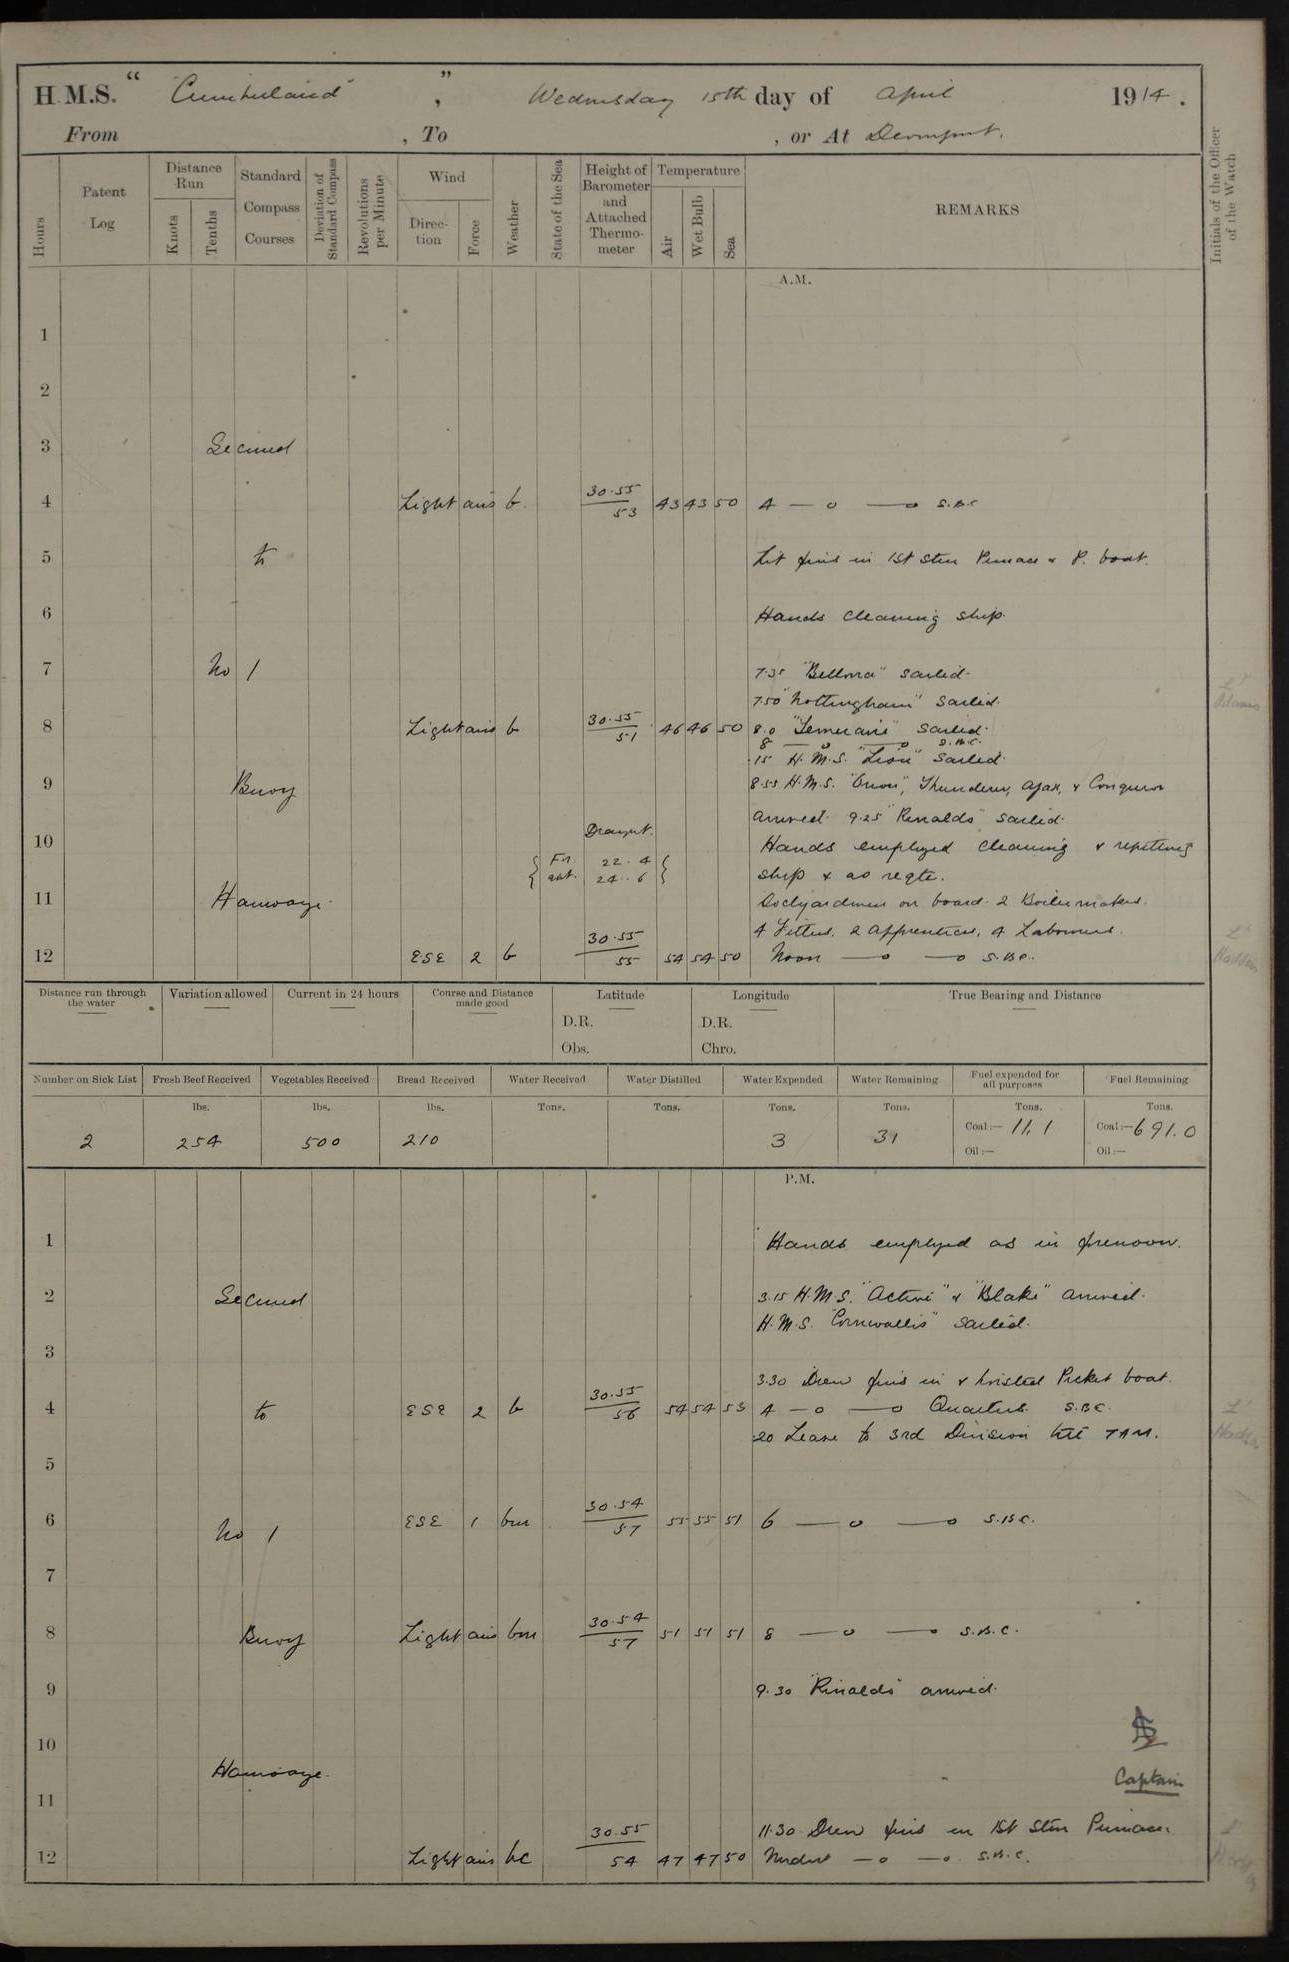 H.M.S. " Cumberland " , Wednesday 15th day of April 1914.
From , To , or At Devonport.
Hours
Patent Log
Distance Run
Knots
Tenths
Standard Compass Courses
Deviation of Standard Compass
Revolutions per Minute
Wind
Direction
Force
Weather
State of the Sea
Height of Barometer and Attached Thermometer
Temperature
Air
Wet Bulb
Sea
REMARKS
Initials of the Officer of the Watch
A.M.
1
2
3 Secured
4 Light airs b 30.55 53 43 43 50 4 — o —o S.B.C
5 to Lit fires in 1st Stm Pinnace & P. boat.
6 Hands cleaning ship.
7 No 1 7.35 "Bellona" sailed.
7.50 "Nottingham" sailed.
8 Light airs b 30.55 51 46 46 50 8.0 "Temeraire" sailed.
8 — o —o S.B.C.
.15 H.M.S. "Lion" sailed.
9 Buoy 8.55 H.M.S. "Orion", Thunderer, Ajax, & Conqueror
arrived. 9.25 "Rinaldo" sailed.
Draught.
10 Hands employed cleaning & refitting
For. 22.4
aft. 24.6 ship & as reqte.
11 Hamoaze. Dockyardmen on board. 2 Boilermakers.
4 Fitters, 2 Apprentices, 4 Labourers.
12 ESE 2 b 30.55 55 54 54 50 Noon —o —o S.B.C.
Distance run through the water
Variation allowed
Current in 24 hours
Course and Distance made good
Latitude
D.R.
Obs.
Longitude
D.R.
Chro.
True Bearing and Distance
Number on Sick List Fresh Beef Received Vegetables Received Bread Received Water Received Water Distilled Water Expended Water Remaining Fuel expended for all purposes Fuel Remaining
lbs. lbs. lbs. Tons. Tons. Tons. Tons. Tons. Tons.
2 254 500 210 3 31 Coal:— 11.1 Coal:— 691.0
Oil:— Oil:—
P.M.
1 Hands employed as in forenoon.
2 Secured 3.15 H.M.S. "Active" & "Blake" arrived.
H.M.S. "Cornwallis" sailed.
3
3.30 Drew fires in & hoisted Picket boat.
4 to ESE 2 b 30.55 56 54 54 53 4 — o —o Quarters. S.B.C.
.20 Leave to 3rd Division till 7 AM.
5
6 No 1 ESE 1 bm 30.54 57 55 55 51 6 — o —o S.B.C.
7
8 Buoy Light airs bm 30.54 57 51 51 51 8 — o —o S.B.C.
9 9.30 "Rinaldo" arrived.
10
Hamoaze. Captain
11
11.30 Drew fires in 1st Stm Pinnace.
12 Light airs bc 30.55 54 47 47 50 Midnt —o —o S.B.C.